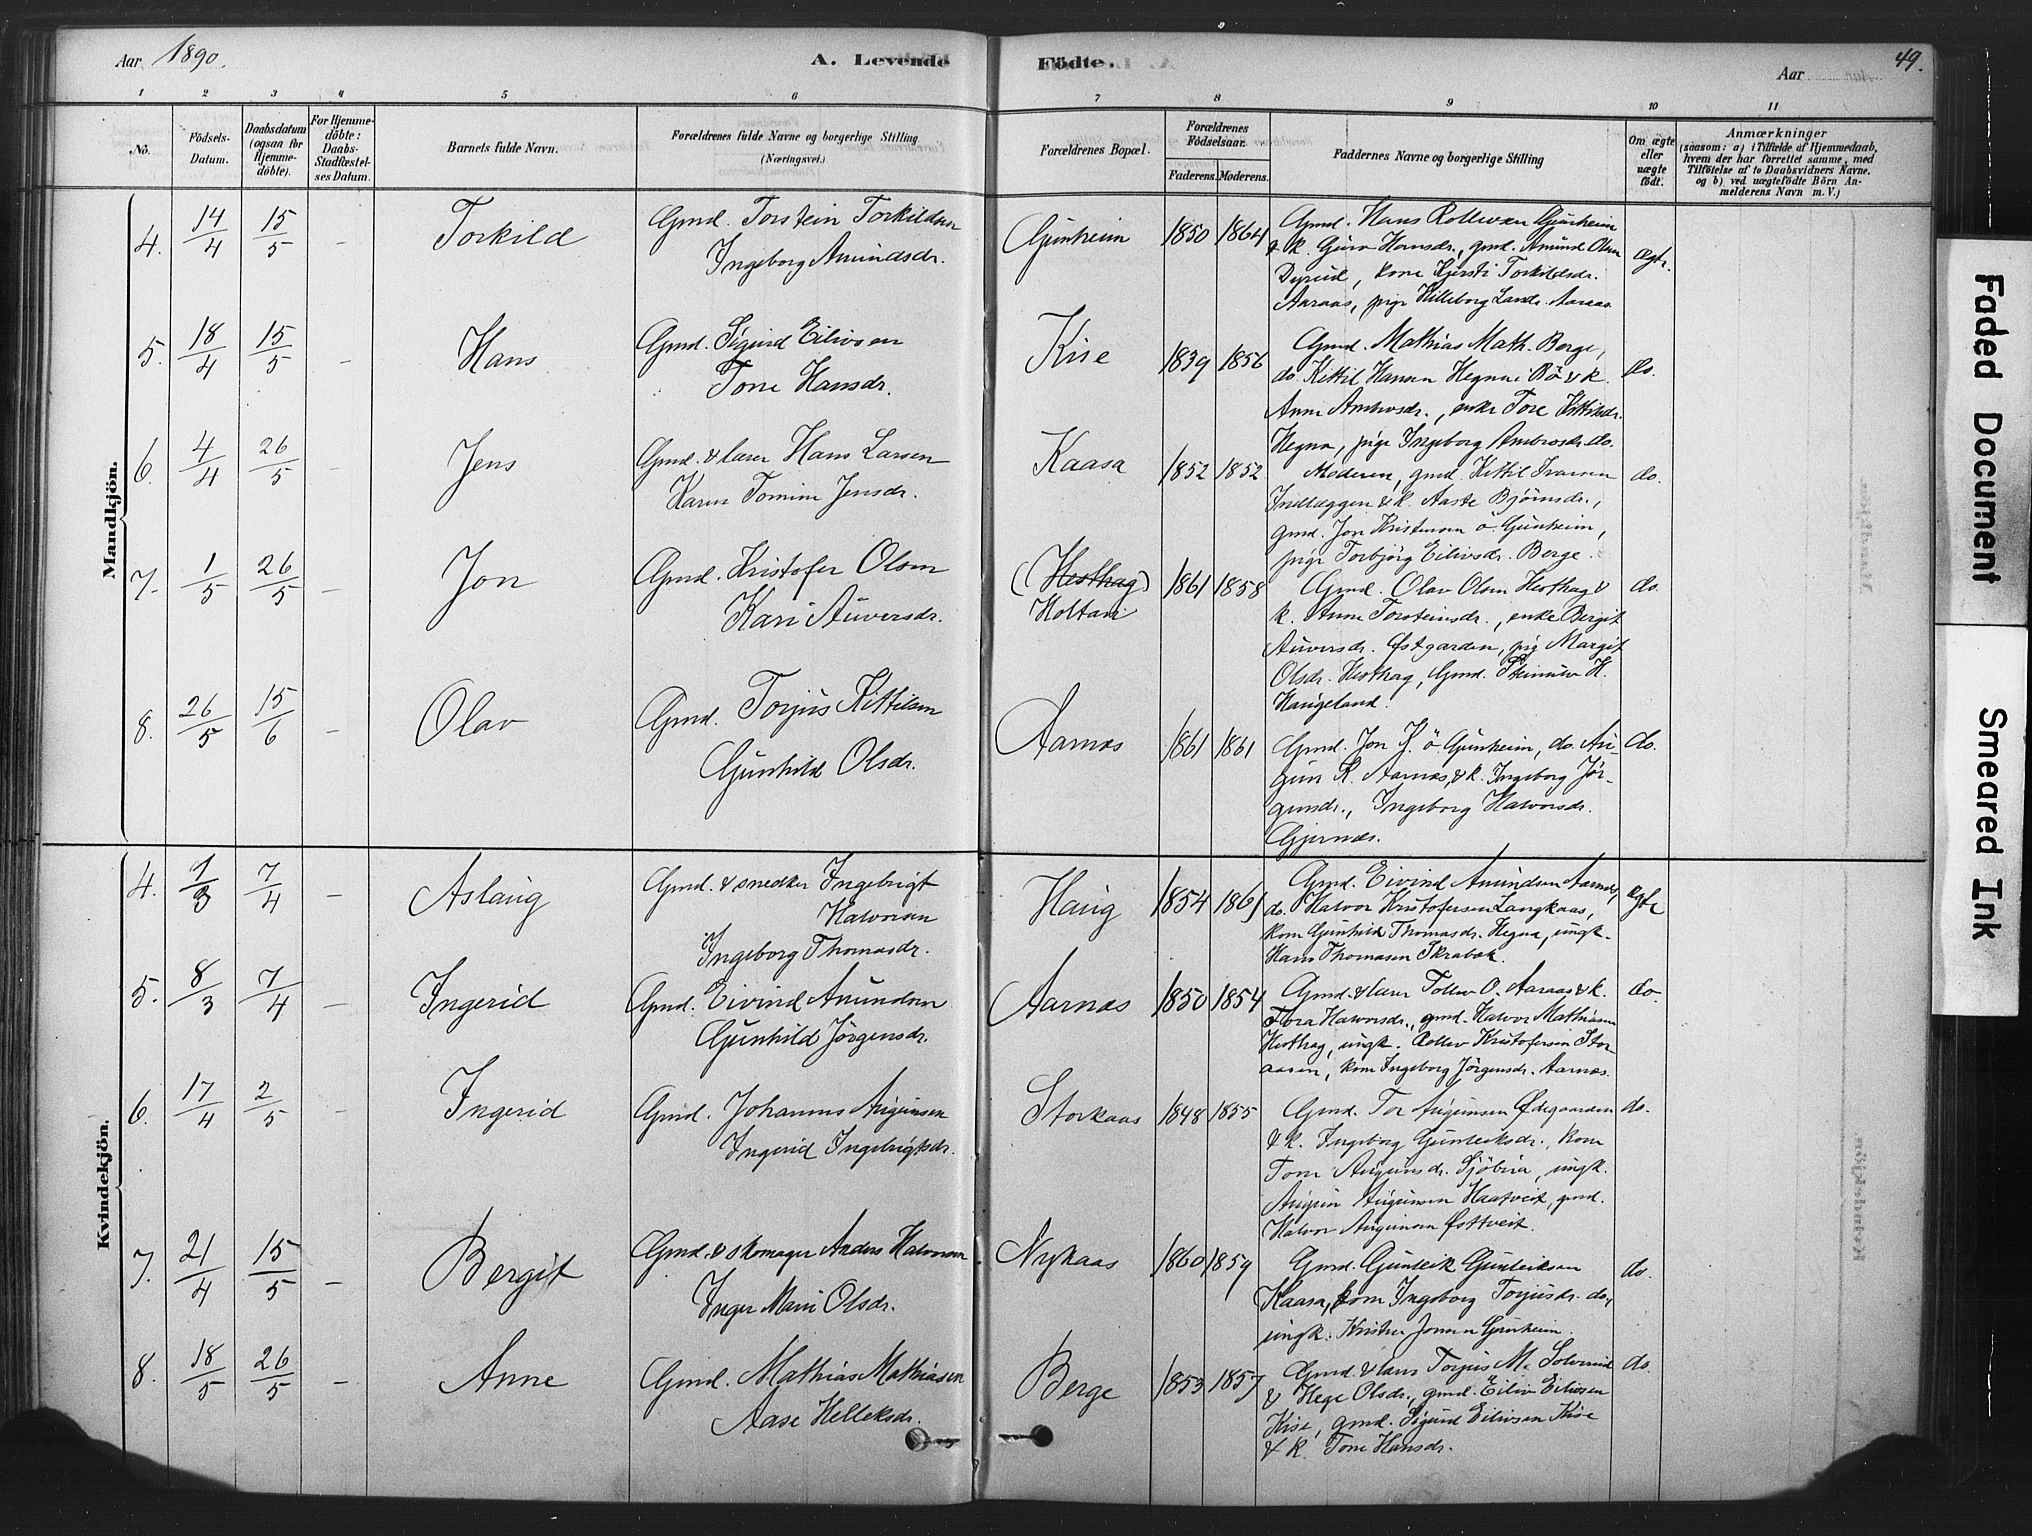 Aar 1890.
A. Levende
Födte.
Aar
49.
1 2 3 4 5 6 7 8 9 10 11
No.
Födsels-Datum.
Daabsdatum (ogsaa for Hjemme-döbte).
For Hjemme-döbte: Daabs-Stadfæstel-ses Datum.
Barnets fulde Navn.
Forældrenes fulde Navne og borgerlige Stilling (Næringsvei.)
Forældrenes Bopæl.
Forældrenes Födselsaar.
Faderens. Moderens.
Faddernes Navne og borgerlige Stilling
Om ægte eller uægte födt.
Anmærkninger
(saasom: a) i Tilfælde af Hjemmedaab, hvem der har forrettet samme, med Tilföielse af to Daabsvidners Navne. og b) ved uægtefödte Börn An-melderens Navn m. V.)
Mandkjön.
4. 14/4 15/5 - Torkild
Gmd. Torstein Torkildsen
Ingeborg Amundsdr.
Gunheim 1850 1864
Gmd. Hans Rollevsen Gunheim
& k. Guro Hansdr., gmd. Amund Olsen
Dyrud, kone Kjersti Torkildsdr.
Aaraas, pige Hilleborg Landr. Aaraas.
ægte.
5. 18/4 15/5 - Hans
Gmd. Sigurd Eilivsen
Tone Hansdr.
Kise 1839 1856
Gmd. Mathias Math. Berge,
do. Kittil Hansen Hegna i Bö & k.
Anne Ambrosdr., enke Tore Kittilsdr.
Hegna, pige Ingeborg Ambrosdr. do.
do.
6. 4/4 26/5 - Jens
Gmd. & lærer Hans Larsen
Karen Tomine Jensdr.
Kaasa 1852 1852
Moderen, gmd. Kittil Ivarsen
Indlæggen & k. Aaste Bjørnsdr.,
gmd. Jon Kristensen ö. Gunheim,
pige Torbjörg Eilivsdr. Berge.
do.
7. 1/5 26/5 - Jon
Gmd. Kristofer Olsen
Kari Auversdr.
(Hesthag)
Holtan 1861 1858
Gmd. Olav Olsen Hesthag &
k. Anne Torsteinsdr., enke Bergit
Auversdr. Østgarden, pig Margit
Olsdr. Hesthag, Gmd. Steinulv H.
Haugeland.
do.
8. 26/5 15/6 - Olav
Gmd. Torjus Kittilsen
Gunhild Olsdr.
Aarnæs 1861 1861
Gmd. Jon K. ö. Gunheim, do. Au-
gun K. Aarnæs, & k. Ingeborg Jör-
gensdr., Ingeborg Halvorsdr.
Gjernæs.
do.
Kvindekjön.
4. 1/3 7/4 - Aslaug
Gmd. & snedker Ingebrigt
Halvorsen
Ingeborg Thomasdr.
Haug 1854 1861
Gmd. Eivind Amundsen Aarnæs,
do. Halvor Kristofersen Langkaas,
kone Gunhild Thomasdr. Hegna, ungk.
Hans Thomasen Skrabæk.
ægte
5. 8/3 7/4 - Ingerid
Gmd. Eivind Amundsen
Gunhild Jörgensdr.
Aarnæs 1850 1854
Gmd. & lærer Tollev O. Aaraas & k.
Tora Halvorsdr., gmd. Halvor Mathiasen
Hesthag, ungk. Rollev Kristofersen Stor-
aasen, kone Ingeborg Jörgensdr. Aarnæs.
do.
6. 17/4 2/5 - Ingerid
Gmd. Johannes Augunsen
Ingerid Ingebrigtsdr.
Storkaas 1848 1855
Gmd. Tor Augunsen Ødegaarden
& k. Ingeborg Gunleiksdr., kone
Tone Augunsdr. Sjöbua, ungk.
Augun Augunsen Haatveit, gmd.
Halvor Augunsen Østtveit.
do.
7. 21/4 15/5 - Bergit
Gmd. & skomager Anders Halvorsen
Inger Marie Olsdr.
Nykaas 1860 1859
Gmd. Gunleik Gunleiksen
Kaasa, kone Ingeborg Torjusdr. do.,
ungk. Kristen Jonsen Gunheim.
do.
8. 18/5 26/5 - Anne
Gmd. Mathias Mathiasen
Aase Helleksdr.
Berge 1853 1857
Gmd. & lærer Torjus M. Solverud
& Hege Olsdr., gmd. Eiliv Eilivsen
Kise, gmd. Sigurd Eilivsen Kise
& k. Tone Hansdr.
do.
Faded Document
Smeared Ink